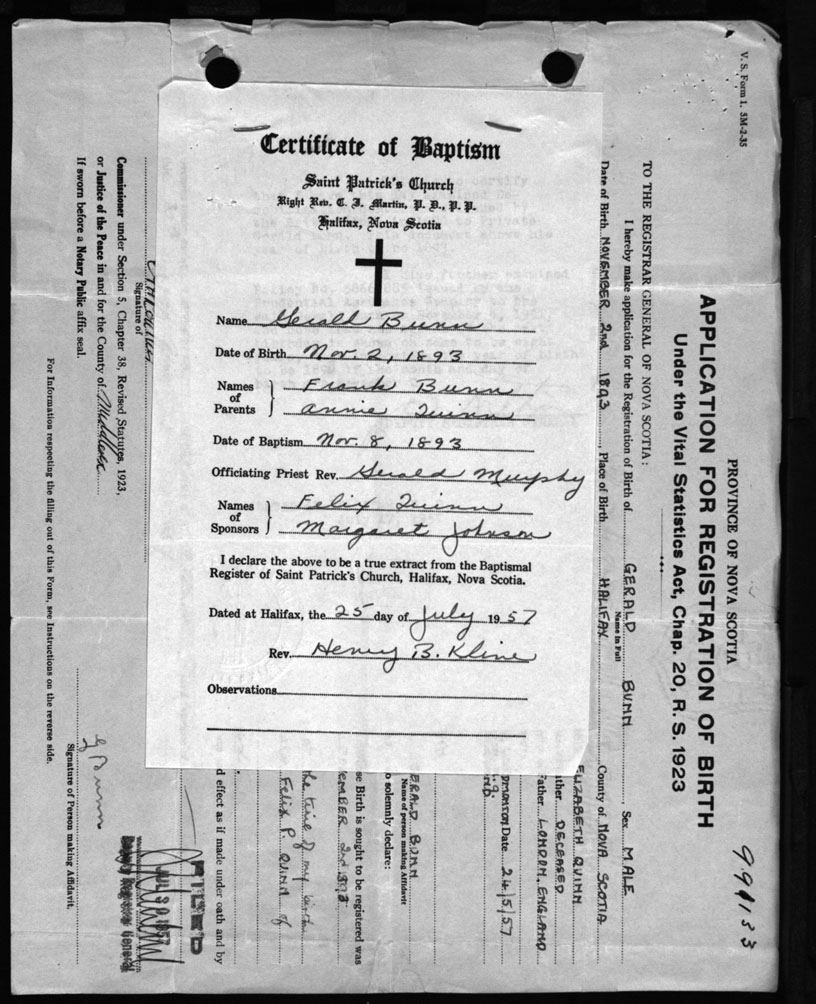 Certificate of Baptism
Saint Patrick's Church
Right Rev. C. J. Martin, P. D., P. P.
Halifax, Nova Scotia
Name Gerald Bunn
Date of Birth Nov. 2, 1893
Names of Parents } Frank Bunn
Annie Quinn
Date of Baptism Nov. 8, 1893
Officiating Priest Rev. Gerald Murphy
Names of Sponsors } Felix Quinn
Margaret Johnson
I declare the above to be a true extract from the Baptismal
Register of Saint Patrick's Church, Halifax, Nova Scotia.
Dated at Halifax, the 25 day of July 1957
Rev. Henry B. Kline
Observations
V. S. Form 1. 5M-2-35
991133
PROVINCE OF NOVA SCOTIA
APPLICATION FOR REGISTRATION OF BIRTH
Under the Vital Statistics Act, Chap. 20, R. S. 1923
TO THE REGISTRAR GENERAL OF NOVA SCOTIA:
I hereby make application for the Registration of Birth of GERALD BUNN, Sex MALE
Name in Full
Date of Birth NOVEMBER 2nd 1893, Place of Birth HALIFAX County of NOVA SCOTIA
ELIZABETH QUINN
DECEASED
Father LONDON, ENGLAND
Date 24/5/57
GERALD BUNN
Name of person making Affidavit
o solemnly declare:
se Birth is sought to be registered was
EMBER 2nd 1893
the time of my birth
Felix P. QUINN of
d effect as if made under oath and by
FILED
JUL 30 1957
Deputy Registrar General
G Bunn
Signature of Person making Affidavit.
Signature of
Commissioner under Section 5, Chapter 38, Revised Statutes, 1923,
or Justice of the Peace in and for the County of
If sworn before a Notary Public affix seal.
For Information respecting the filling out of this Form, see Instructions on the reverse side.